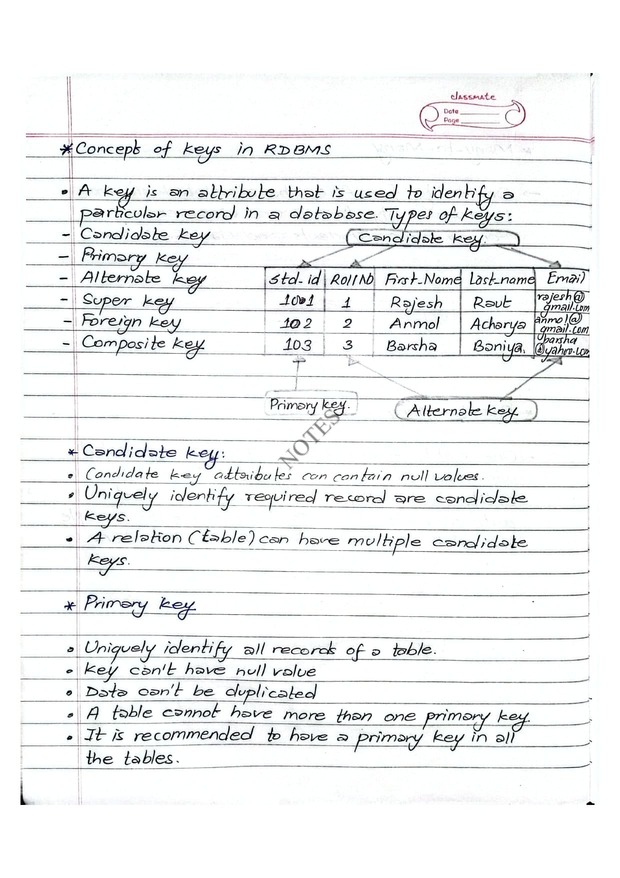 classmate
Date
Page
* Concept of keys in RDBMS
• A key is an attribute that is used to identify a
particular record in a database. Types of keys:
- Candidate key
Candidate key.
- Primary key
- Alternate key
- Super key
- Foreign key
- Composite key
Std_id Roll No First_Name Last_name Email
1001 1 Rajesh Raut rajesh@
gmail.com
102 2 Anmol Acharya anmol@
gmail.com
103 3 Barsha Baniya. barsha
@yahoo.com
Primary key.
Alternate key
NOTES
* Candidate key:
• Candidate key attributes can contain null values.
• Uniquely identify required record are candidate
keys.
• A relation (table) can have multiple candidate
keys.
* Primary key
• Uniquely identify all records of a table.
• Key can't have null value
• Data can't be duplicated
• A table cannot have more than one primary key.
• It is recommended to have a primary key in all
the tables.